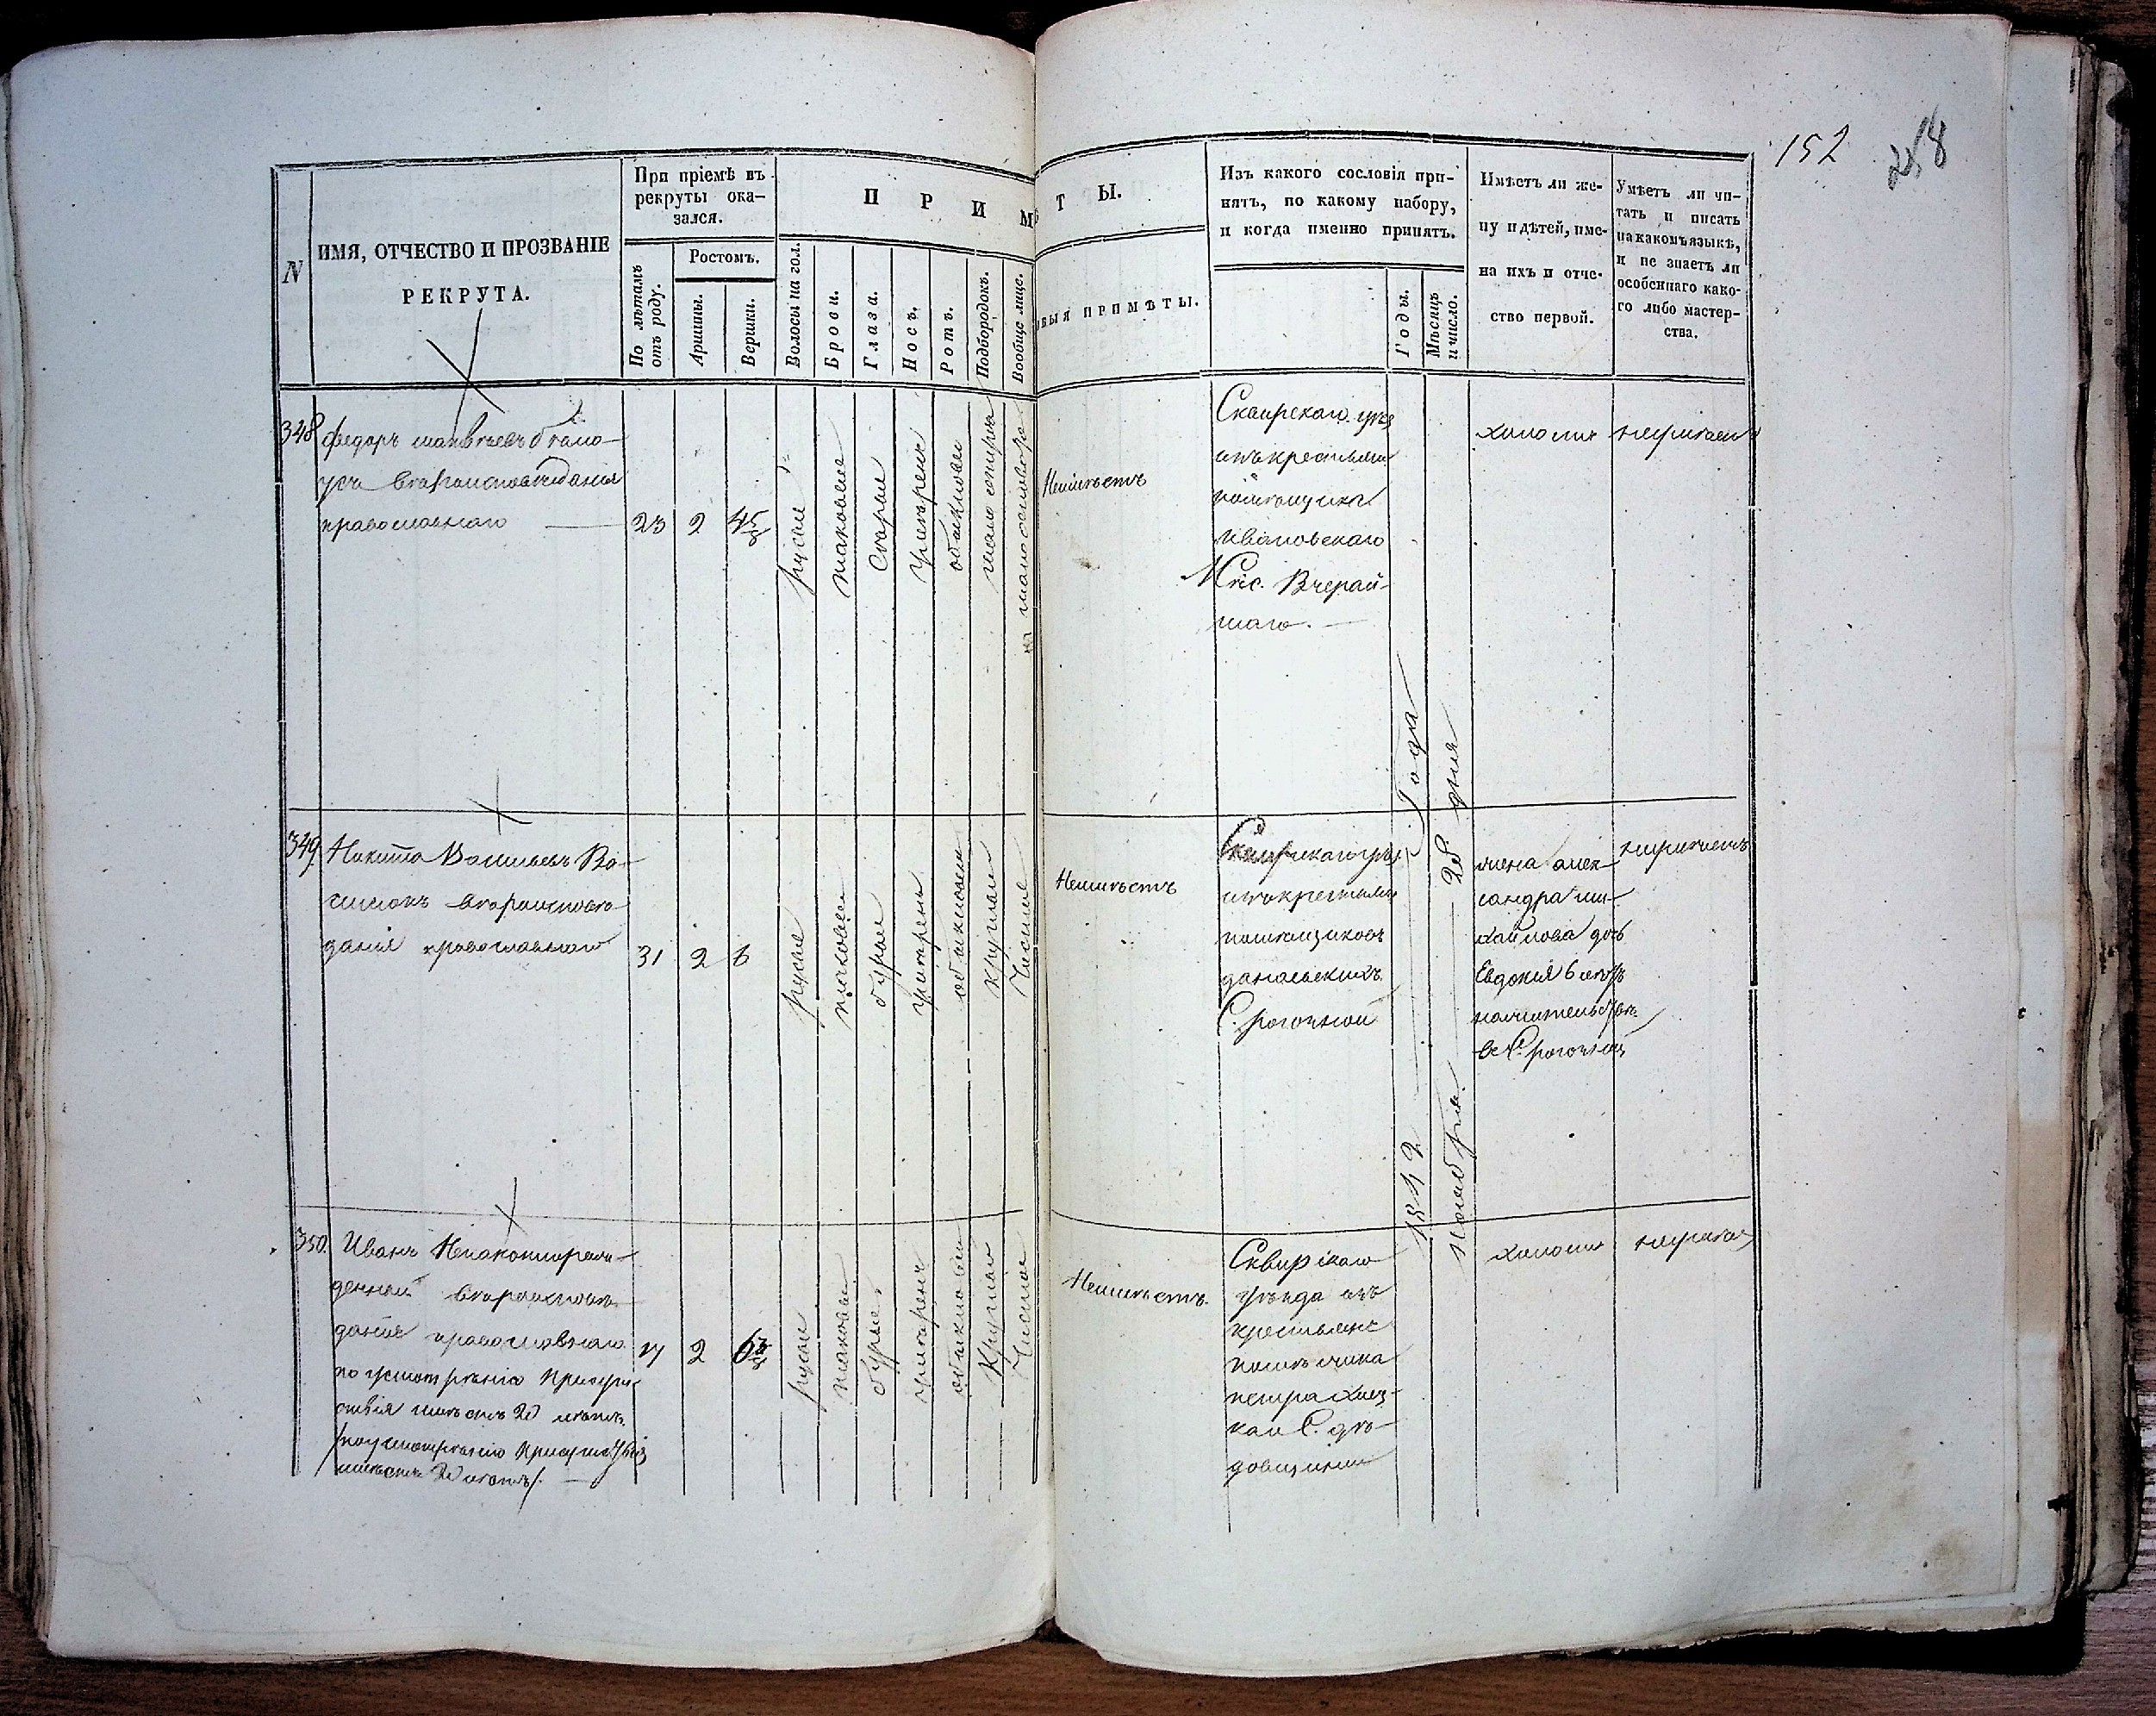 152
218
N
ИМЯ, ОТЧЕСТВО И ПРОЗВАНІЕ
РЕКРУТА.
При пріемѣ въ
рекруты ока-
зался.
По лѣтамъ
отъ роду.
Ростомъ.
Аршины.
Вершки.
П Р И М Ѣ Т Ы.
Волосы на гол.
Брови.
Глаза.
Носъ.
Ротъ.
Подбородокъ.
Вообще лице.
ОБЫЯ ПРИМѢТЫ.
Изъ какого сословія при-
нятъ, по какому набору,
и когда именно принятъ.
Годы.
Мѣсяцъ
и число.
Имѣетъ ли же-
ну и дѣтей, име-
на ихъ и отче-
ство первой.
Умѣетъ ли чи-
тать и писать
на какомъ языкѣ,
и не знаетъ ли
особеннаго како-
го либо мастер-
ства.
348
Федоръ
православнаго
23
2
русые
таковые
серые
умѣренъ
обыкновен
Неимѣетъ
Сквирскаго уѣз
изъ крестьянъ
помѣщика
Ивановскаго
Вчерай-
шаго.
холостъ
неграмотн
349
Никита Васильевъ
вѣроисповѣ-
данія православнаго
31
2
6
русые
таковые
бурые
умѣренъ
обыкновен
круглый
Чистое
Неимѣетъ
Сквирскаго уѣз
изъ крестьянъ
помѣщиковъ
С. рогозной
1842 Года
Ноября 28 дня
жена Алек-
сандра Ми-
хайлова дочь
Евдокія 6 лѣтъ
жительств
въ С. рогозной
неграмотенъ
350.
Иванъ Незаконнорож-
денный вѣроисповѣ-
данія православнаго
по усмотрѣнію Присут-
ствія имѣетъ 20 лѣтъ
/по усмотрѣнію Присутствія
имѣетъ 20 лѣтъ/.
17
2
русые
таковые
бурые
умѣренъ
обыкновен
Круглый
Чистое
Неимѣетъ.
Сквирскаго
уѣзда изъ
крестьянъ
помѣщика
петра
С. дѣ-
довщины
холостъ
неграмот